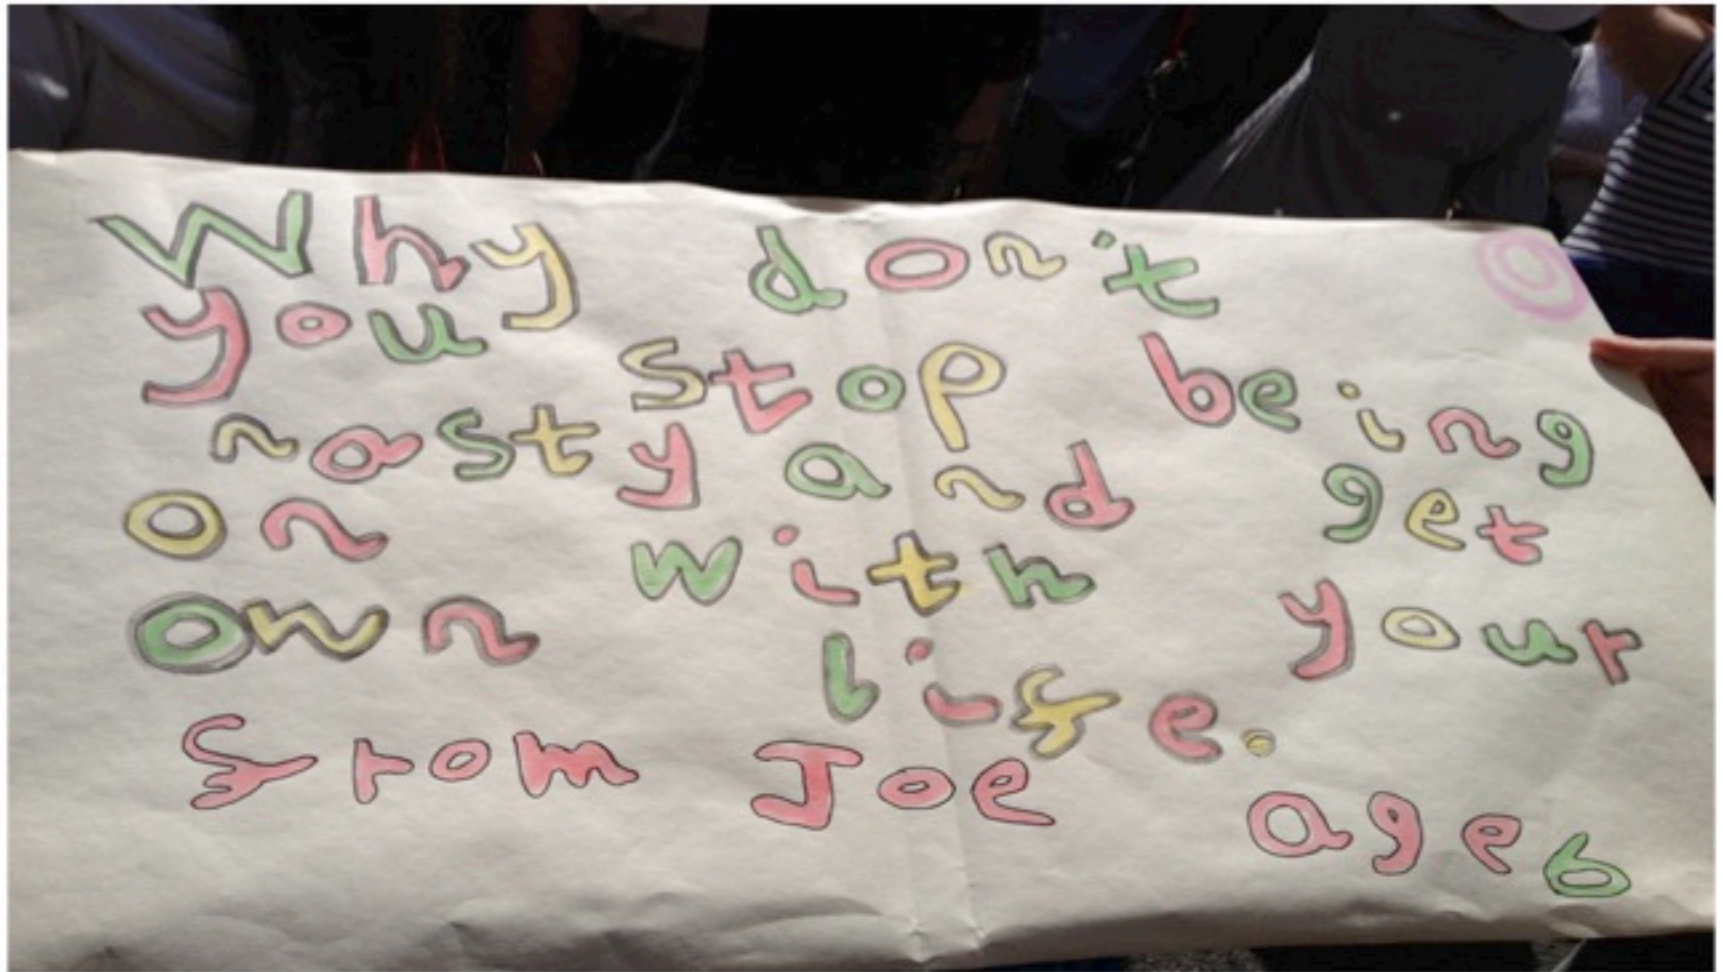 Why don't
you stop being
nasty and get
on with your
own life.
from Joe age 6